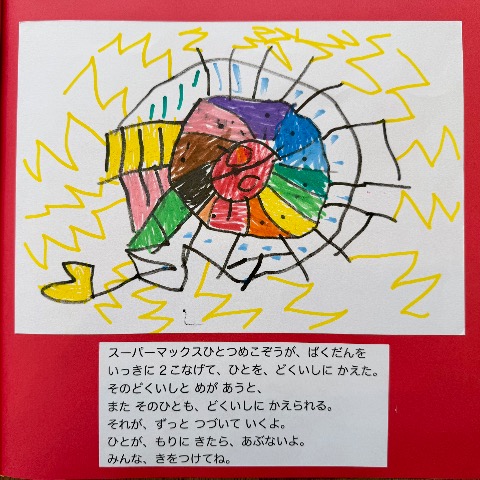 スーパーマックスひとつめこぞうが、ばくだんを
いっきに２こなげて、ひとを、どくいしに かえた。
そのどくいしと めが あうと、
また そのひとも、どくいしに かえられる。
それが、ずっと つづいて いくよ。
ひとが、もりに きたら、あぶないよ。
みんな、きをつけてね。